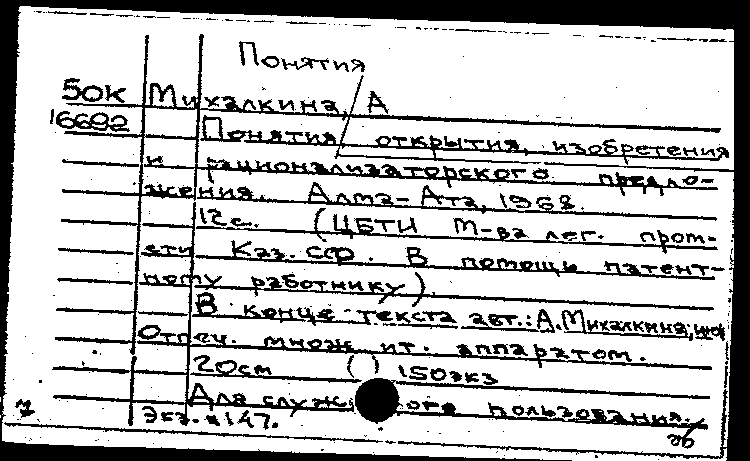 Понятия
50К Михалкина, А
16692 Понятия открытия, изобретения
и рационализаторского предло-
жения. Алма-Ата, 1968.
12с. (ЦБТИ М-ва лег. пром-
сти Каз. ССР. В помощь патент-
ному работнику).
В конце текста авт.: А. Михалкина,
Отпеч. множит. аппаратом.
20см ( ) 150экз
Для служ ого пользования.
Экз. 147.